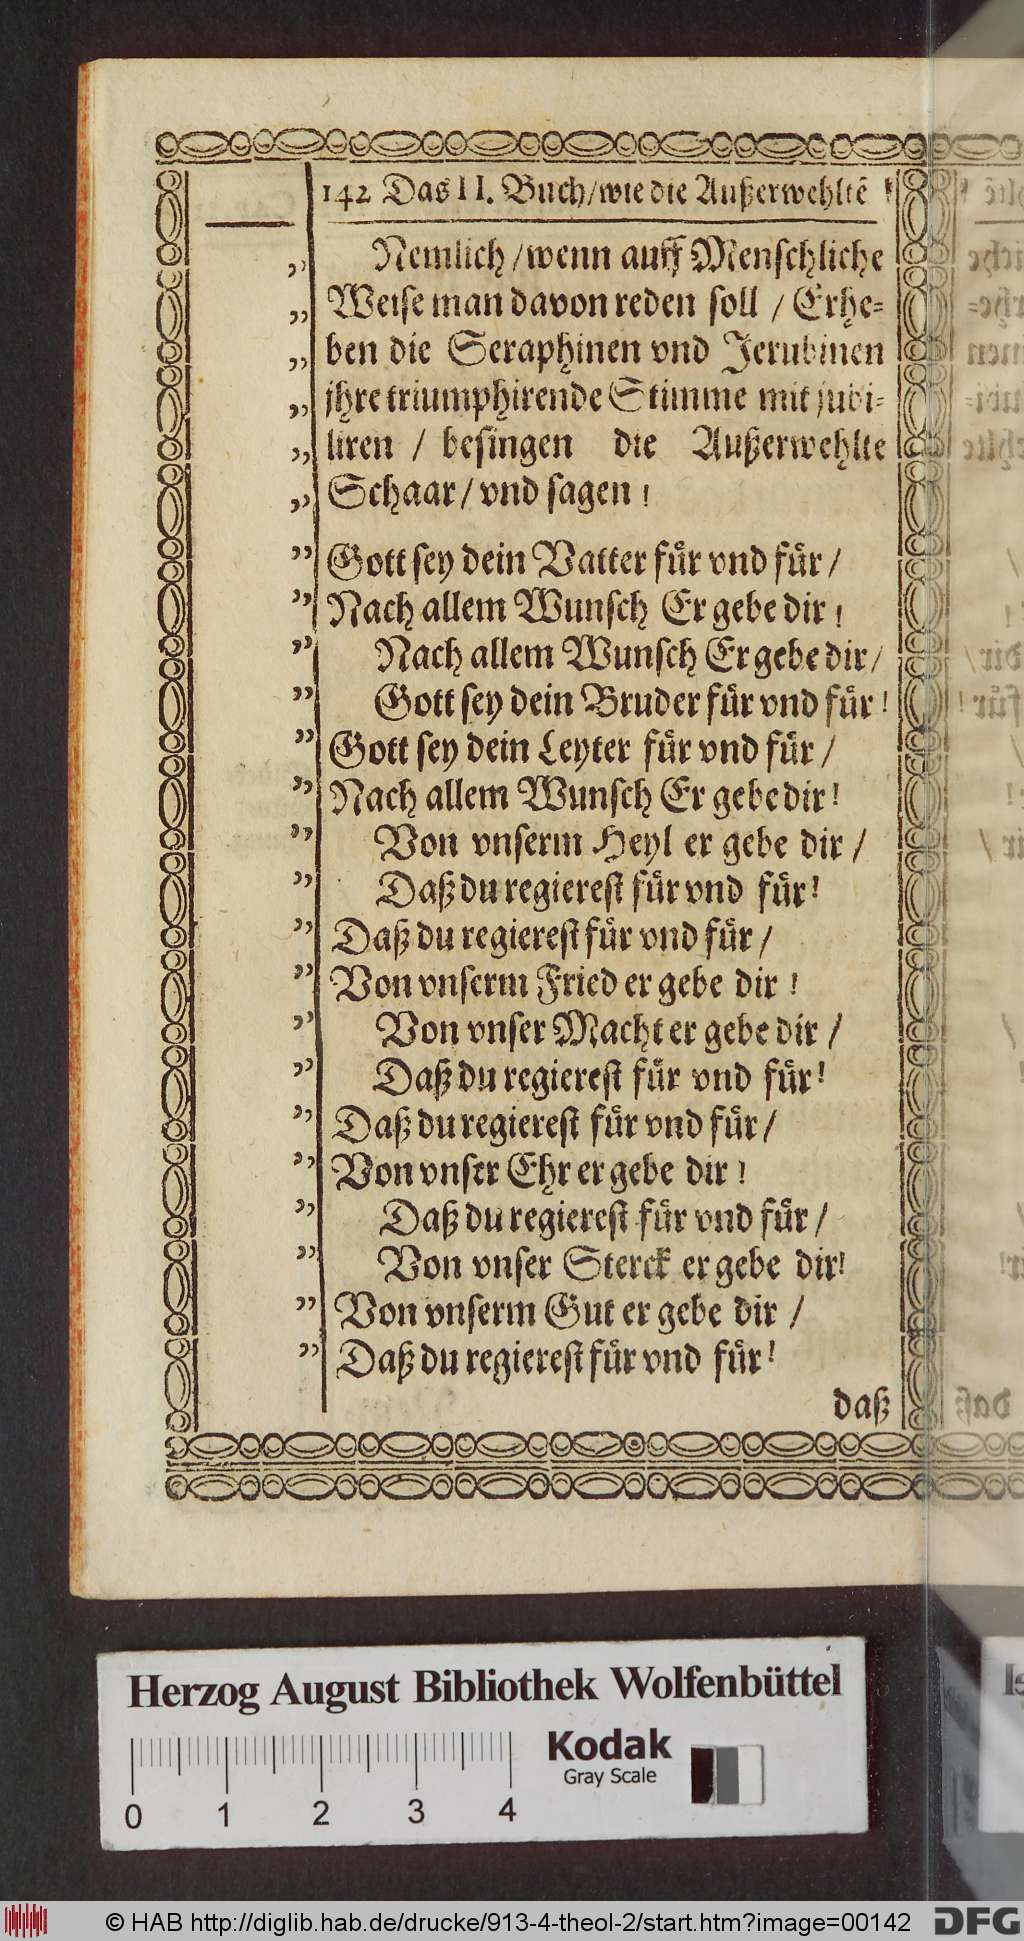 142 Das II. Buch/wie die Außerwehltẽ
Nemlich/wenn auff Menschliche
Weise man davon reden soll / Erhe-
ben die Seraphinen vnd Jerubinen
jhre triumphirende Stimme mit jubi-
liren / besingen die Außerwehlte
Schaar/ vnd sagen!
Gott sey dein Vatter fuͤr vnd fuͤr /
Nach allem Wunsch Er gebe dir!
Nach allem Wunsch Er gebe dir/
Gott sey dein Bruder fuͤr vnd fuͤr!
Gott sey dein Leyter fuͤr vnd fuͤr /
Nach allem Wunsch Er gebe dir!
Von vnserm Heyl er gebe dir /
Daß du regierest fuͤr vnd fuͤr!
Daß du regierest fuͤr vnd fuͤr /
Von vnserm Fried er gebe dir!
Von vnser Macht er gebe dir /
Daß du regierest fuͤr vnd fuͤr!
Daß du regierest fuͤr vnd fuͤr/
Von vnser Ehr er gebe dir!
Daß du regierest fuͤr vnd fuͤr /
Von vnser Sterck er gebe dir!
Von vnserm Gut er gebe dir /
Daß du regierest fuͤr vnd fuͤr!
daß
Herzog August Bibliothek Wolfenbüttel
Kodak
Gray Scale
0 1 2 3 4
© HAB http://diglib.hab.de/drucke/913-4-theol-2/start.htm?image=00142
DFG